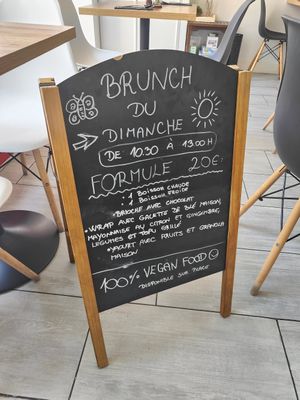 BRUNCH
DU
DIMANCHE
DE 10.30 A 13:00H
FORMULE 20€:
• 1 BOISSON CHAUDE
• 1 BOISSON FROIDE
• BRIOCHE AVEC CHOCOLAT
• WRAP AVEC GALETTE DE BLÉ MAISON,
MAYONNAISE AU CITRON ET GINGEMBRE,
LÉGUMES ET TOFU GRILLÉ
• YAOURT AVEC FRUITS ET GRANOLA
MAISON
100% VEGAN FOOD
DISPONIBLE SUR PLACE